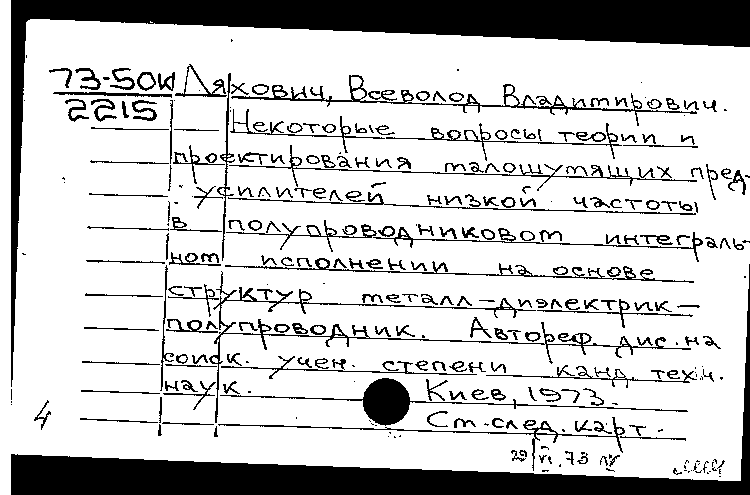 73-50к Ляхович, Всеволод Владимирович.
2215
Некоторые вопросы теории и
проектирования малошумящих пред-
усилителей низкой частоты
в полупроводниковом интеграль-
ном исполнении на основе
структур металл-диэлектрик-
полупроводник. Автореф. дис. на
соиск. учен. степени канд. техн.
наук. Киев, 1973.
4 См. след. карт.
29 VI 73